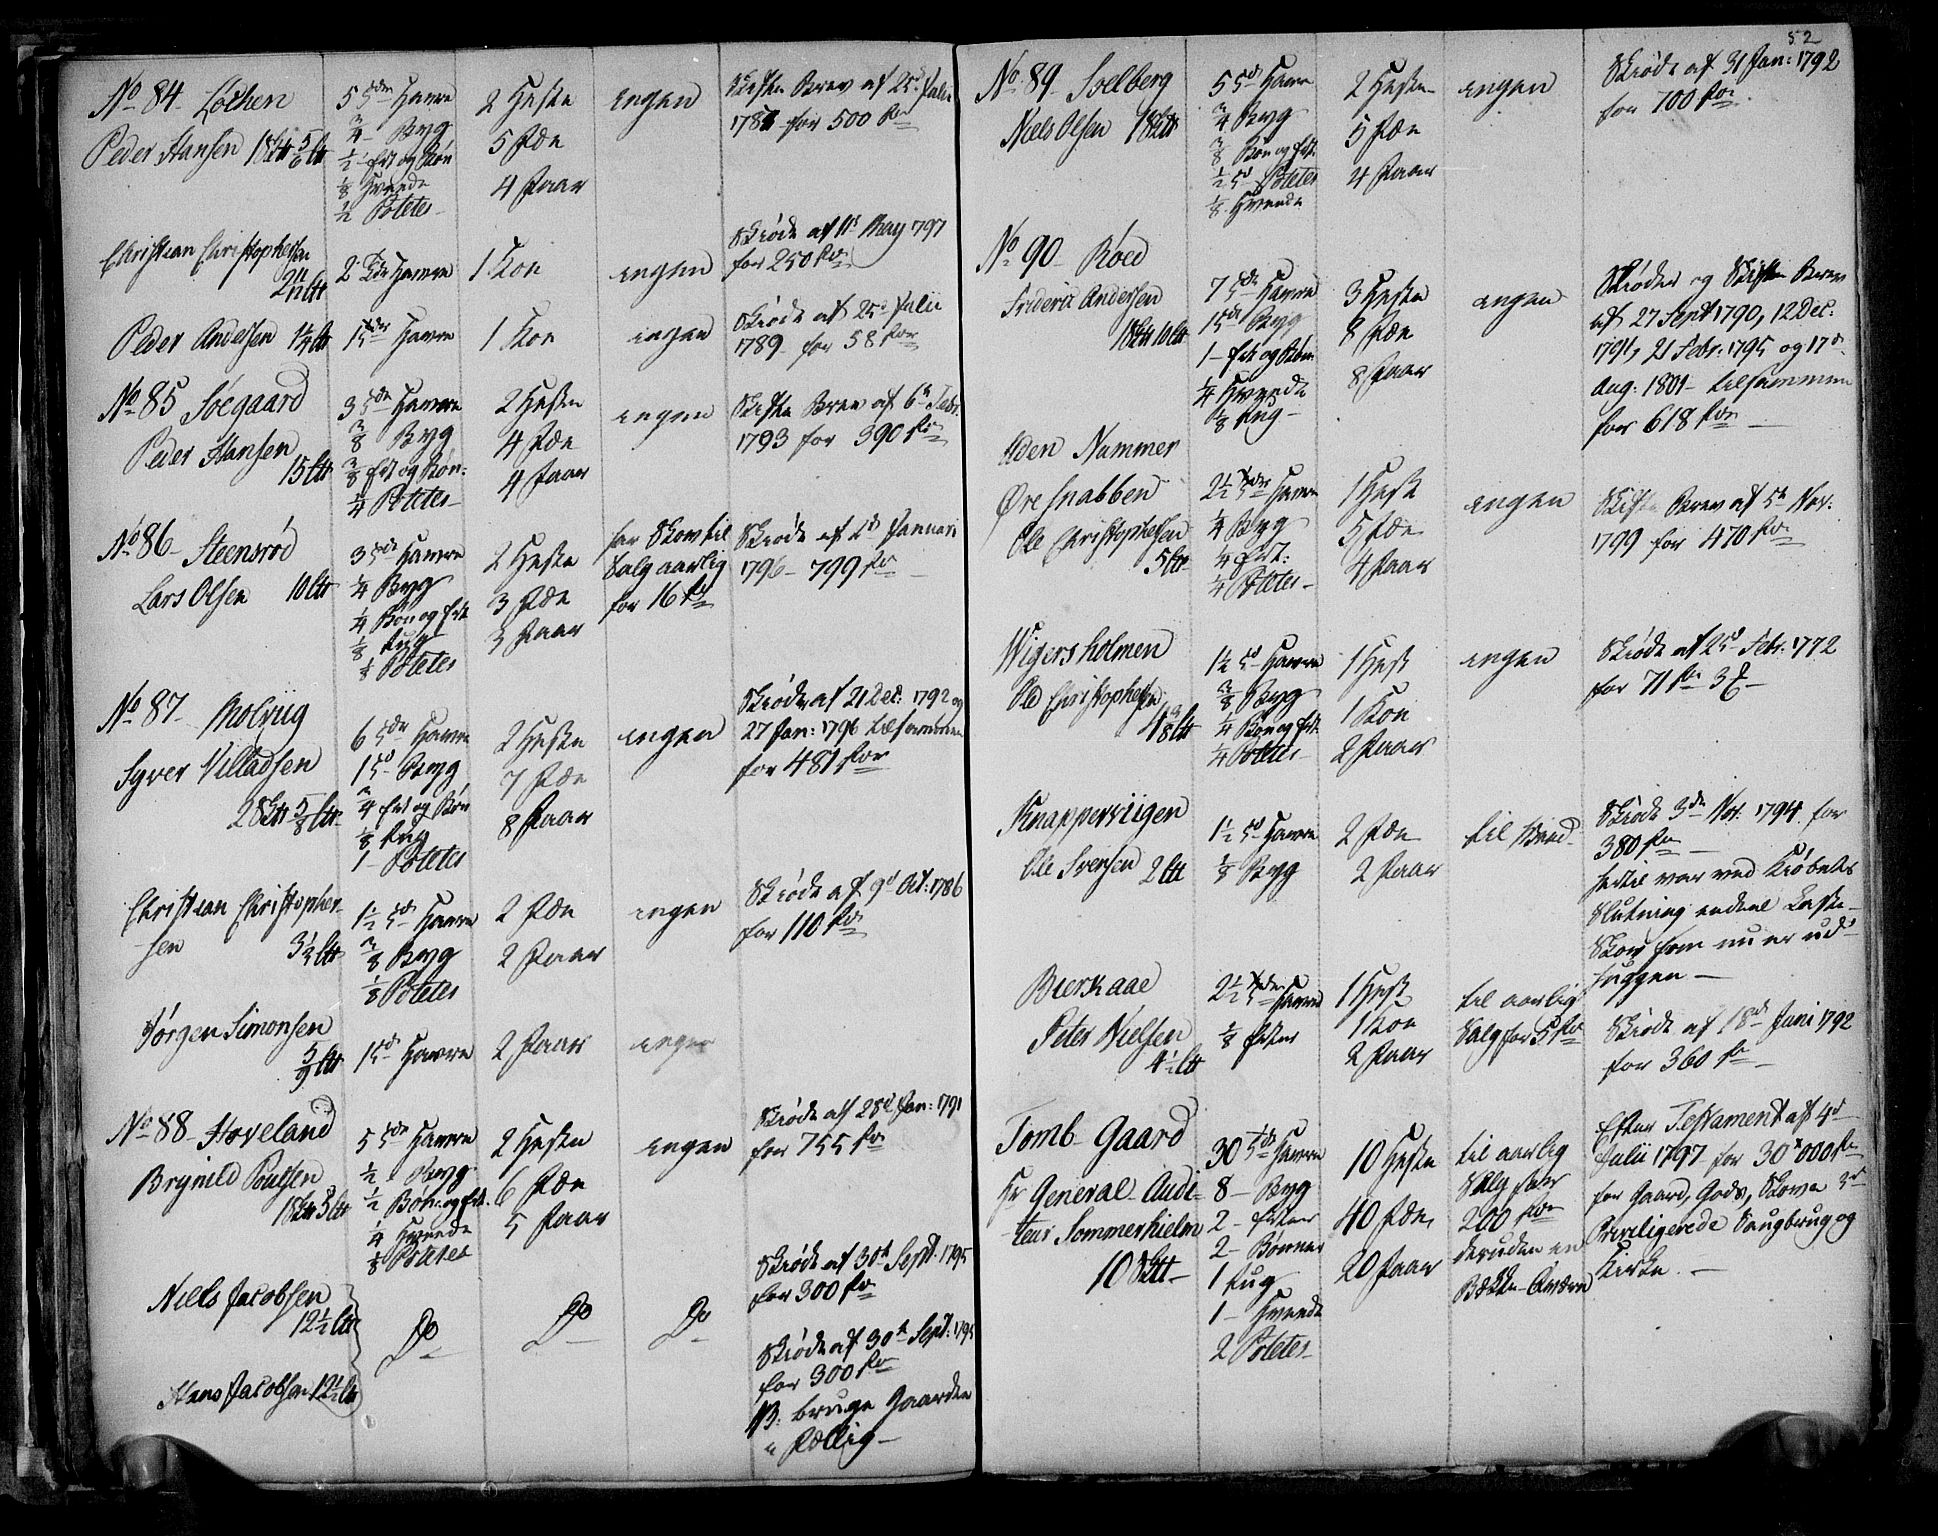 No 84 Lochen
Peder Hansen 1 Skt 5/6 ltt
5 Tdr Havre
3/4 Byg
1/2 Ert og Bøn
1/8 Hvede
1/2 Potetes
2 Heste
5 Fæe
4 Faar
ingen
Skifte Brev af 25d Julii
for 500 rdr
Christian Christophersen
2 ltt
2 Tdr Havre
1 Koe
ingen
Skiøde af 11d May 1797
for 250 rdr
Peder Andersen 1/4 ltt
1 Tdr Havre
1 Koe
ingen
Skiøde af 25d Julii
1789 for 58 rdr
No 85 Söegaard
Peder Hansen
15 ltt
3 Tdr Havre
3/8 Byg
3/8 Ert og Bøn:
1/4 Potetes
2 Heste
4 Fæe
4 Faar
ingen
Skifte Brev af 6te Febr.
1793 for 390 rdr
No 86 Steensrød
Lars Olsen 10 ltt
3 Tdr Havre
1/4 Byg
1/4 Bøn og Ert
1/8 Rug
1/8 Potetes
2 Heste
3 Fæe
3 Faar
har Skov til
Salg aarlig
for 16 rd
Skiøde af Januari
1796 799 rdr
No 87
Syver Villadsen
2 Skt 5/8 ltt
6 Tdr Havre
1 Td Byg
3/4 Ert og Bøn
1/8 Rug
1 Potetes
2 Heste
7 Fæe
8 Faar
ingen
Skiøde af 21 Dec: 1792 og
27 Jan: 1796 tilsammen
for 481 rdr
Christian Christopher-
sen
3 1/2 ltt
1 1/2 Td Havre
3/8 Byg
1/8 Potetes
2 Fæe
2 Faar
ingen
Skiøde af 9d Oct: 1786
for 110 rdr
Jørgen Simonsen
5/9 ltt
1 Td Havre
2 Faar
ingen
No 88 Hoveland
Brynild Poulsen
1 Skt 5 ltt
5 Tdr Havre
1/2 Byg
1/2 Bøn og Ert.
1/4 Hvede
1/8 Potetes
2 Heste
6 Fæe
5 Faar
ingen
Skiøde af 28d Jan: 1791
for 755 rdr
Niels Jacobsen
12 1/2 ltt
Do
Do
Do
Skiøde af 30te Sept: 1795
for 300 rdr
Hans Jacobsen 12 1/2 ltt
Skiøde af 30te Sept: 1795
for 300 rdr
NB: bruge Gaarden
Fællig
52
No 89 Soelberg
Niels Olsen 1 Skt
5 Tdr Havre
3/4 Byg
3/8 Bøn og Ert.
1/2 Td Potetes
1/8 Hvede
2 Heste
5 Fæe
4 Faar
ingen
Skiøde af 31 Jan: 1792
for 700 rdr
No 90 Röed
Friderik Andersen
1 Skt 10 ltt
7 Tdr Havre
1 Td Byg
1 Ert og Bøn
1/4 Hvede
1/8 Rug
3 Heste
8 Fæe
8 Faar
ingen
Skiøder og Skifte Brev
af 27 Sept 1790, 12 Dec:
1791, 21 Febr: 1795 og 17d
Aug. 1801 tilsammen
for 618 rdr
Uden Nummer
Øresnabben
Ole Christophersen
5 ltt
2 1/2 Tdr Havre
1/4 Byg
1/4 Ert:
1/4 Potetes
1 Hest
5 Fæe
4 Faar
ingen
Skifte Brev af 5te Nov:
1799 for 470 rdr
Wigersholmen
Ole Christophersen
1 1/2 Td Havre
3/8 Byg
1/4 Bøn og Ert.
1/4 Potetes
1 Hest
1 Koe
2 Faar
ingen
Skiøde af 25d Febr: 1772
for 71 rdr
Knapperviigen
Ole Svensen 2 ltt
1 1/2 Td Havre
1/8 Byg
2 Fæe
2 Faar
til Brænd
Skiøde 3de Nov: 1794 for
380 rdr
hertil var ved Kiøbets
Slutning endeel Laste-
Skov som nu er ud-
huggen
Bierkaae
Peter Nielsen
4 1/2 ltt
2 1/2 Tdr Havre
1/8 Erter
1 Hest
1 Koe
2 Faar
til aarlig
Salg for 5 rdr
Skiøde af 18d Juni 1792
for 360 rdr
Tomb Gaard
Hr General Audi-
teur Sommerhielm
10 Skt
30 Tdr Havre
8 Byg
2 Erter
2 Bønner
1 Rug
1 Hvede
2 Potetes
10 Heste
40 Fæe
20 Faar
til aarlig
Salg for
200 rdr
desuden en
Bække-Qværn
Efter Testament af 4d
Julii 1797 for 30,000 rdr
for Gaard, Gods, Skove
Priviligerede Saugbrug og
Kirke